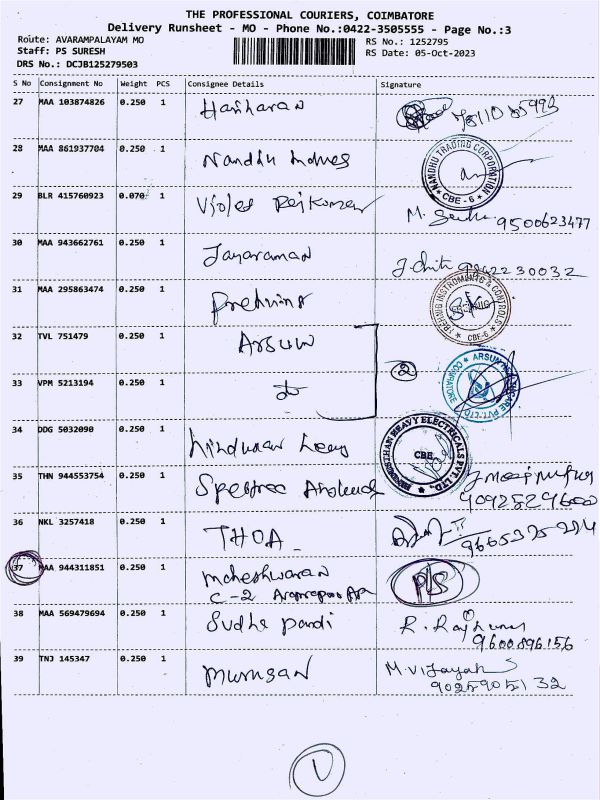 THE PROFESSIONAL COURIERS, COIMBATORE
Delivery Runsheet - MO - Phone No.:0422-3505555 - Page No.:3
Route: AVARAMPALAYAM MO
RS No.: 1252795
Staff: PS SURESH
RS Date: 05-Oct-2023
DRS No.: DCJB125279503
S No Consignment No Weight PCS Consignee Details Signature
27 MAA 103874826 0.250 1 Hariharan
28 MAA 861937704 0.250 1 Nandhu NANDHU TRADING CORPORATION CBE - 6
29 BLR 415760923 0.070 1 Violet Rajkumar M. 9500623477
30 MAA 943662761 0.250 1 Jayaraman
31 MAA 295863474 0.250 1 INSTRUMENTS & CONTROLS CBE-6
32 TVL 751479 0.250 1 Arsun
33 VPM 5213194 0.250 1 do 2 ARSUN
34 DDG 5032090 0.250 1 Hindusthan Heavy HINDUSTHAN HEAVY ELECTRICALS PVT. LTD. CBE
35 THN 944553754 0.250 1
36 NKL 3257418 0.250 1 THOA
37 MAA 944311851 0.250 1 Maheshwaran P/S
C-2
38 MAA 569479694 0.250 1 Sudha Pandi R. Raj
9600896156
39 TNJ 145347 0.250 1 Murugan M. Vijayak
9025905132